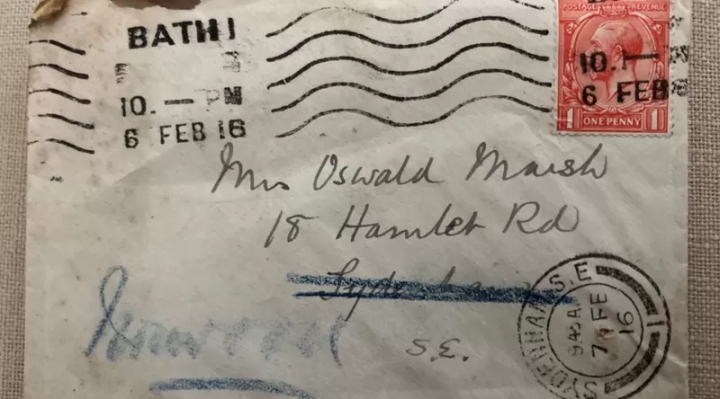 BATH 1
10. — PM
6 FEB 16
POSTAGE REVENUE
10. —
6 FEB
1 ONE PENNY 1
Mrs Oswald Marsh
18 Hamlet Rd
Sydenham
Norwood
S.E.
SYDENHAM S.E.
9.45 A
7 FE
16
1